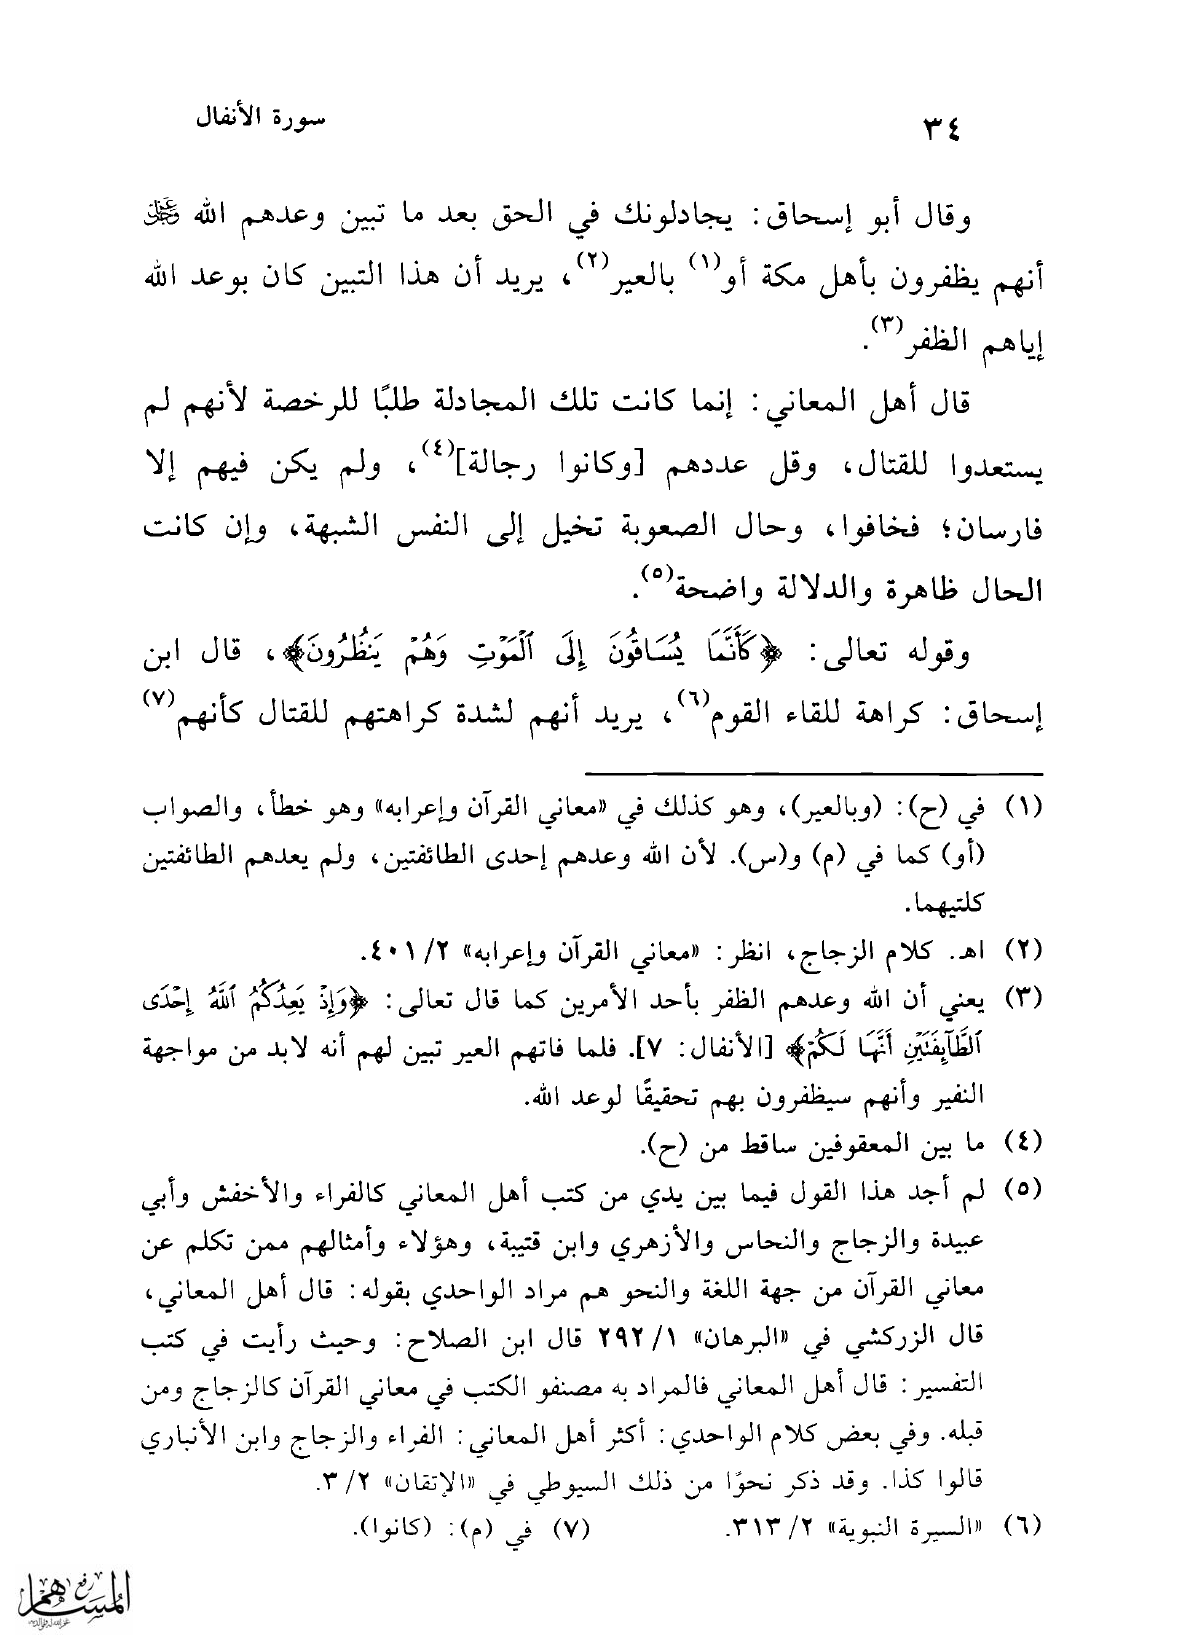 ٣٤
سورة الأنفال
وقال أبو إسحاق: يجادلونك في الحق بعد ما تبين وعدهم الله عز وجل
أنهم يظفرون بأهل مكة أو(١) بالعير(٢)، يريد أن هذا التبين كان بوعد الله
إياهم الظفر(٣).
قال أهل المعاني: إنما كانت تلك المجادلة طلبًا للرخصة لأنهم لم
يستعدوا للقتال، وقل عددهم [وكانوا رجالة](٤)، ولم يكن فيهم إلا
فارسان؛ فخافوا، وحال الصعوبة تخيل إلى النفس الشبهة، وإن كانت
الحال ظاهرة والدلالة واضحة(٥).
وقوله تعالى: ﴿كَأَنَّمَا يُسَاقُونَ إِلَى ٱلْمَوْتِ وَهُمْ يَنظُرُونَ﴾، قال ابن
إسحاق: كراهة للقاء القوم(٦)، يريد أنهم لشدة كراهتهم للقتال كأنهم(٧)
(١) في (ح): (وبالعير)، وهو كذلك في «معاني القرآن وإعرابه» وهو خطأ، والصواب
(أو) كما في (م) و(س). لأن الله وعدهم إحدى الطائفتين، ولم يعدهم الطائفتين
كلتيهما.
(٢) اهـ. كلام الزجاج، انظر: «معاني القرآن وإعرابه» ٢/ ٤٠١.
(٣) يعني أن الله وعدهم الظفر بأحد الأمرين كما قال تعالى: ﴿وَإِذْ يَعِدُكُمُ ٱللَّهُ إِحْدَى
ٱلطَّآئِفَتَيْنِ أَنَّهَا لَكُمْ﴾ [الأنفال: ٧]. فلما فاتهم العير تبين لهم أنه لابد من مواجهة
النفير وأنهم سيظفرون بهم تحقيقًا لوعد الله.
(٤) ما بين المعقوفين ساقط من (ح).
(٥) لم أجد هذا القول فيما بين يدي من كتب أهل المعاني كالفراء والأخفش وأبي
عبيدة والزجاج والنحاس والأزهري وابن قتيبة، وهؤلاء وأمثالهم ممن تكلم عن
معاني القرآن من جهة اللغة والنحو هم مراد الواحدي بقوله: قال أهل المعاني،
قال الزركشي في «البرهان» ١/ ٢٩٢ قال ابن الصلاح: وحيث رأيت في كتب
التفسير: قال أهل المعاني فالمراد به مصنفو الكتب في معاني القرآن كالزجاج ومن
قبله. وفي بعض كلام الواحدي: أكثر أهل المعاني: الفراء والزجاج وابن الأنباري
قالوا كذا. وقد ذكر نحوًا من ذلك السيوطي في «الإتقان» ٢/ ٣.
(٦) «السيرة النبوية» ٢/ ٣١٣. (٧) في (م): (كانوا).
رفع
المساهم